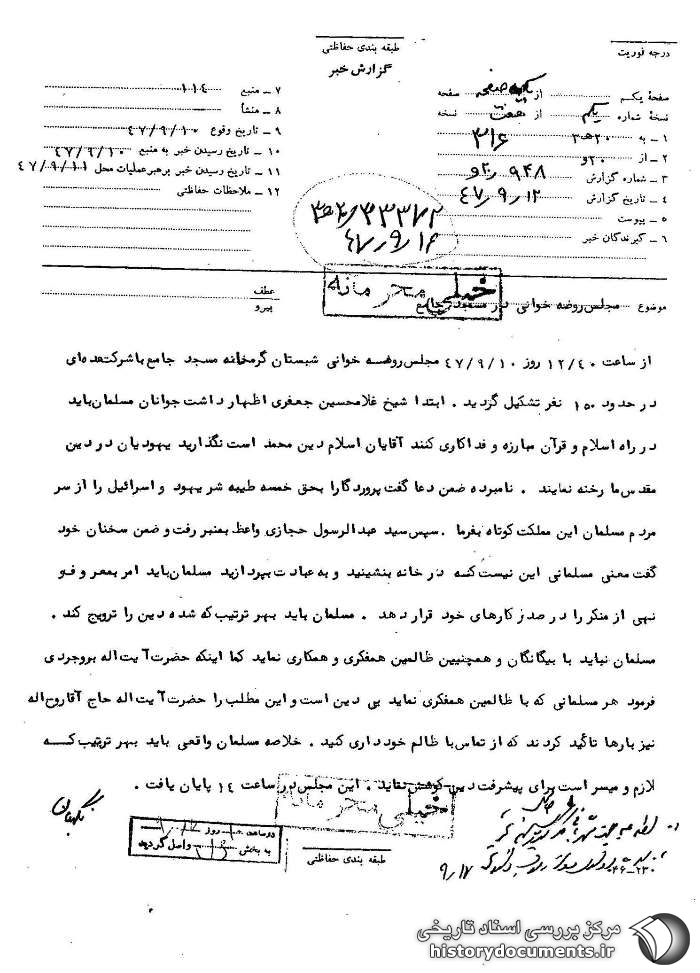 درجه فوریت
طبقه بندی حفاظتی
گزارش خبر
صفحهٔ یکم از صفحه
نسخهٔ شماره یکم از هفت نسخه
۱ ـ به ۲۰ هـ ۳ ۳۱۶
۲ ـ از ۲۰ و
۳ ـ شماره گزارش ۹۴۸
۴ ـ تاریخ گزارش ۴۷/۹/۱۲
۵ ـ پیوست
۶ ـ گیرندگان خبر
۷ ـ منبع ۱۱۴
۸ ـ منشأ
۹ ـ تاریخ وقوع ۴۷/۹/۱۰
۱۰ ـ تاریخ رسیدن خبر به منبع ۴۷/۹/۱۰
۱۱ ـ تاریخ رسیدن خبر برهبر عملیات محل ۴۷/۹/۱۱
۱۲ ـ ملاحظات حفاظتی
۴۷/۹/۱۶
خیلی محرمانه
موضوع مجلس روضه خوانی در مسجد جامع
عطف
پیرو
از ساعت ۱۲/۴۰ روز ۴۷/۹/۱۰ مجلس روضه خوانی شبستان گرمخانه مسجد جامع با شرکت عده‌ای
در حدود ۱۵۰ نفر تشکیل گردید . ابتدا شیخ غلامحسین جعفری اظهار داشت جوانان مسلمان باید
در راه اسلام و قرآن مبارزه و فداکاری کنند آقایان اسلام دین محمد است نگذارید یهودیان در دین
مقدس ما رخنه نمایند . نامبرده ضمن دعا گفت پروردگارا بحق خمسه طیبه شر یهود و اسرائیل را از سر
مردم مسلمان این مملکت کوتاه بفرما . سپس سید عبدالرسول حجازی واعظ بمنبر رفت و ضمن سخنان خود
گفت معنی مسلمانی این نیست که در خانه بنشینید و به عبادت بپردازید مسلمان باید امر بمعروف و
نهی از منکر را در صدر کارهای خود قرار دهد . مسلمان باید بهر ترتیب که شده دین را ترویج کند .
مسلمان نباید با بیگانگان و همچنین ظالمین همفکری و همکاری نماید کما اینکه حضرت آیت‌اله بروجردی
فرمود هر مسلمانی که با ظالمین همفکری نماید بی دین است و این مطلب را حضرت آیت‌اله حاج آقا روح‌اله
نیز بارها تأکید کردند که از تماس با ظالم خودداری کنید . خلاصه مسلمان واقعی باید بهر ترتیب کـه
لازم و میسر است برای پیشرفت دین کوشش نماید . این مجلس در ساعت ۱۴ پایان یافت .
خیلی محرمانه
نگهبان
۹/۱۷
در ساعت روز
به بخش ۳۱۶ واصل گردید
طبقه بندی حفاظتی
مرکز بررسی اسناد تاریخی
historydocuments.ir